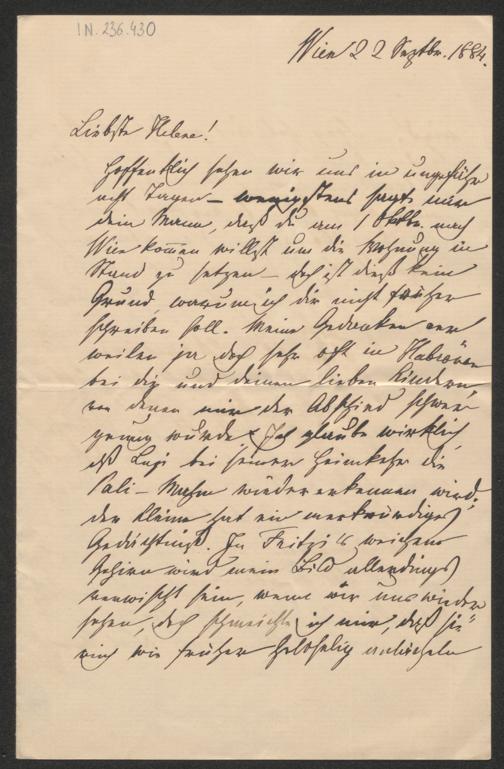 IN. 236.430
Wien 22 Septbr. 1884.
Liebste Helene!
Hoffentlich sehen wir uns in ungefähr
acht Tagen – wenigstens sagte mir
dein Mann, daß du am 1 Oktbr. nach
Wien kommen willst um die Wohnung in
Stand zu setzen – doch ist dieß kein
Grund, warum ich dir nicht früher
schreiben soll. Meine Gedanken ver
weilen ja doch sehr oft in
bei dir und deinen lieben Kindern,
von denen mir der Abschied schwer
genug wurde. Ich glaube wirklich,
daß bei seiner Heimkehr die
wiedererkennen wird;
der Kleine hat ein merkwürdiges
Gedächtniß. In Fritzi's weichem
Gehirn wird mein Bild allerdings
verwischt sein, wenn wir uns wieder
sehen, doch schmeichle ich mir, daß sie
mich wie früher holdselig anlächeln